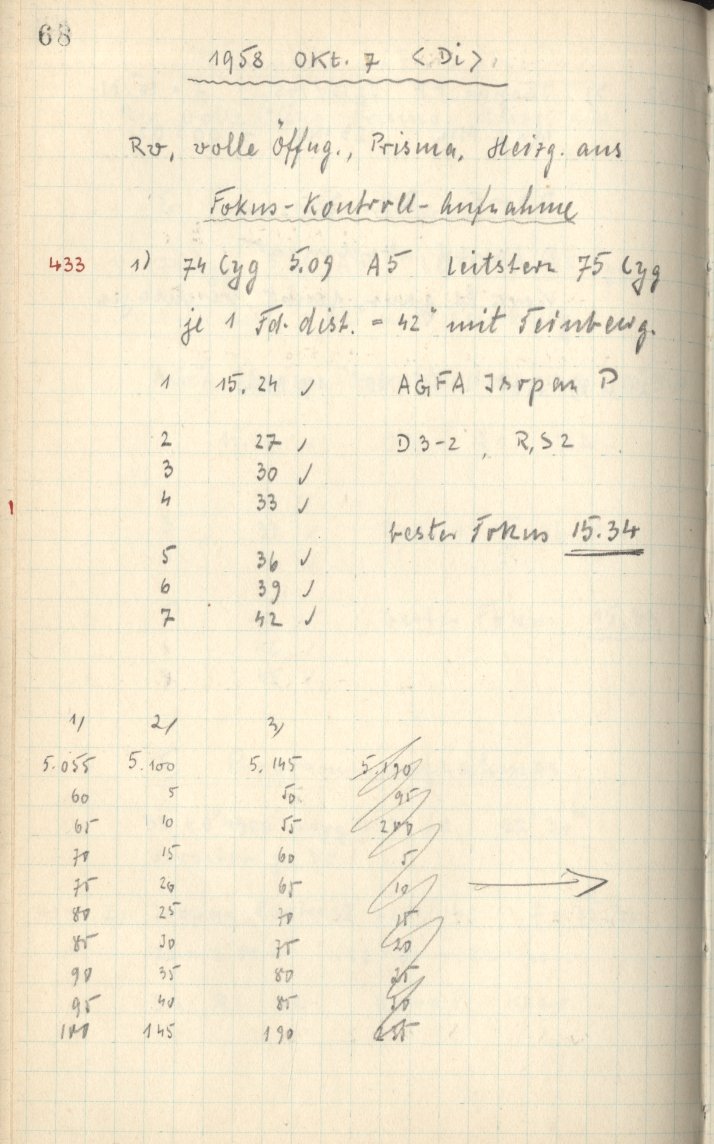 68
1958 Okt. 7 <Di>.
Rv, volle Öffng., Prisma, Heizg. aus
Fokus-Kontroll-Aufnahme
433 1) 74 Cyg 5.09 A5 Leitstern 75 Cyg
je 1 Fd. dist. = 42" mit Feinbewg.
1 15.24 ✓ AGFA Isopan P
2 27 ✓ D3-2, R, S2
3 30 ✓
4 33 ✓
bester Fokus 15.34
5 36 ✓
6 39 ✓
7 42 ✓
1) 2) 3)
5.055 5.100 5.145 5.190
60 5 50 95
65 10 55 200
70 15 60 5
75 20 65 10
80 25 70 15
85 30 75 20
90 35 80 25
95 40 85 30
100 145 190 235